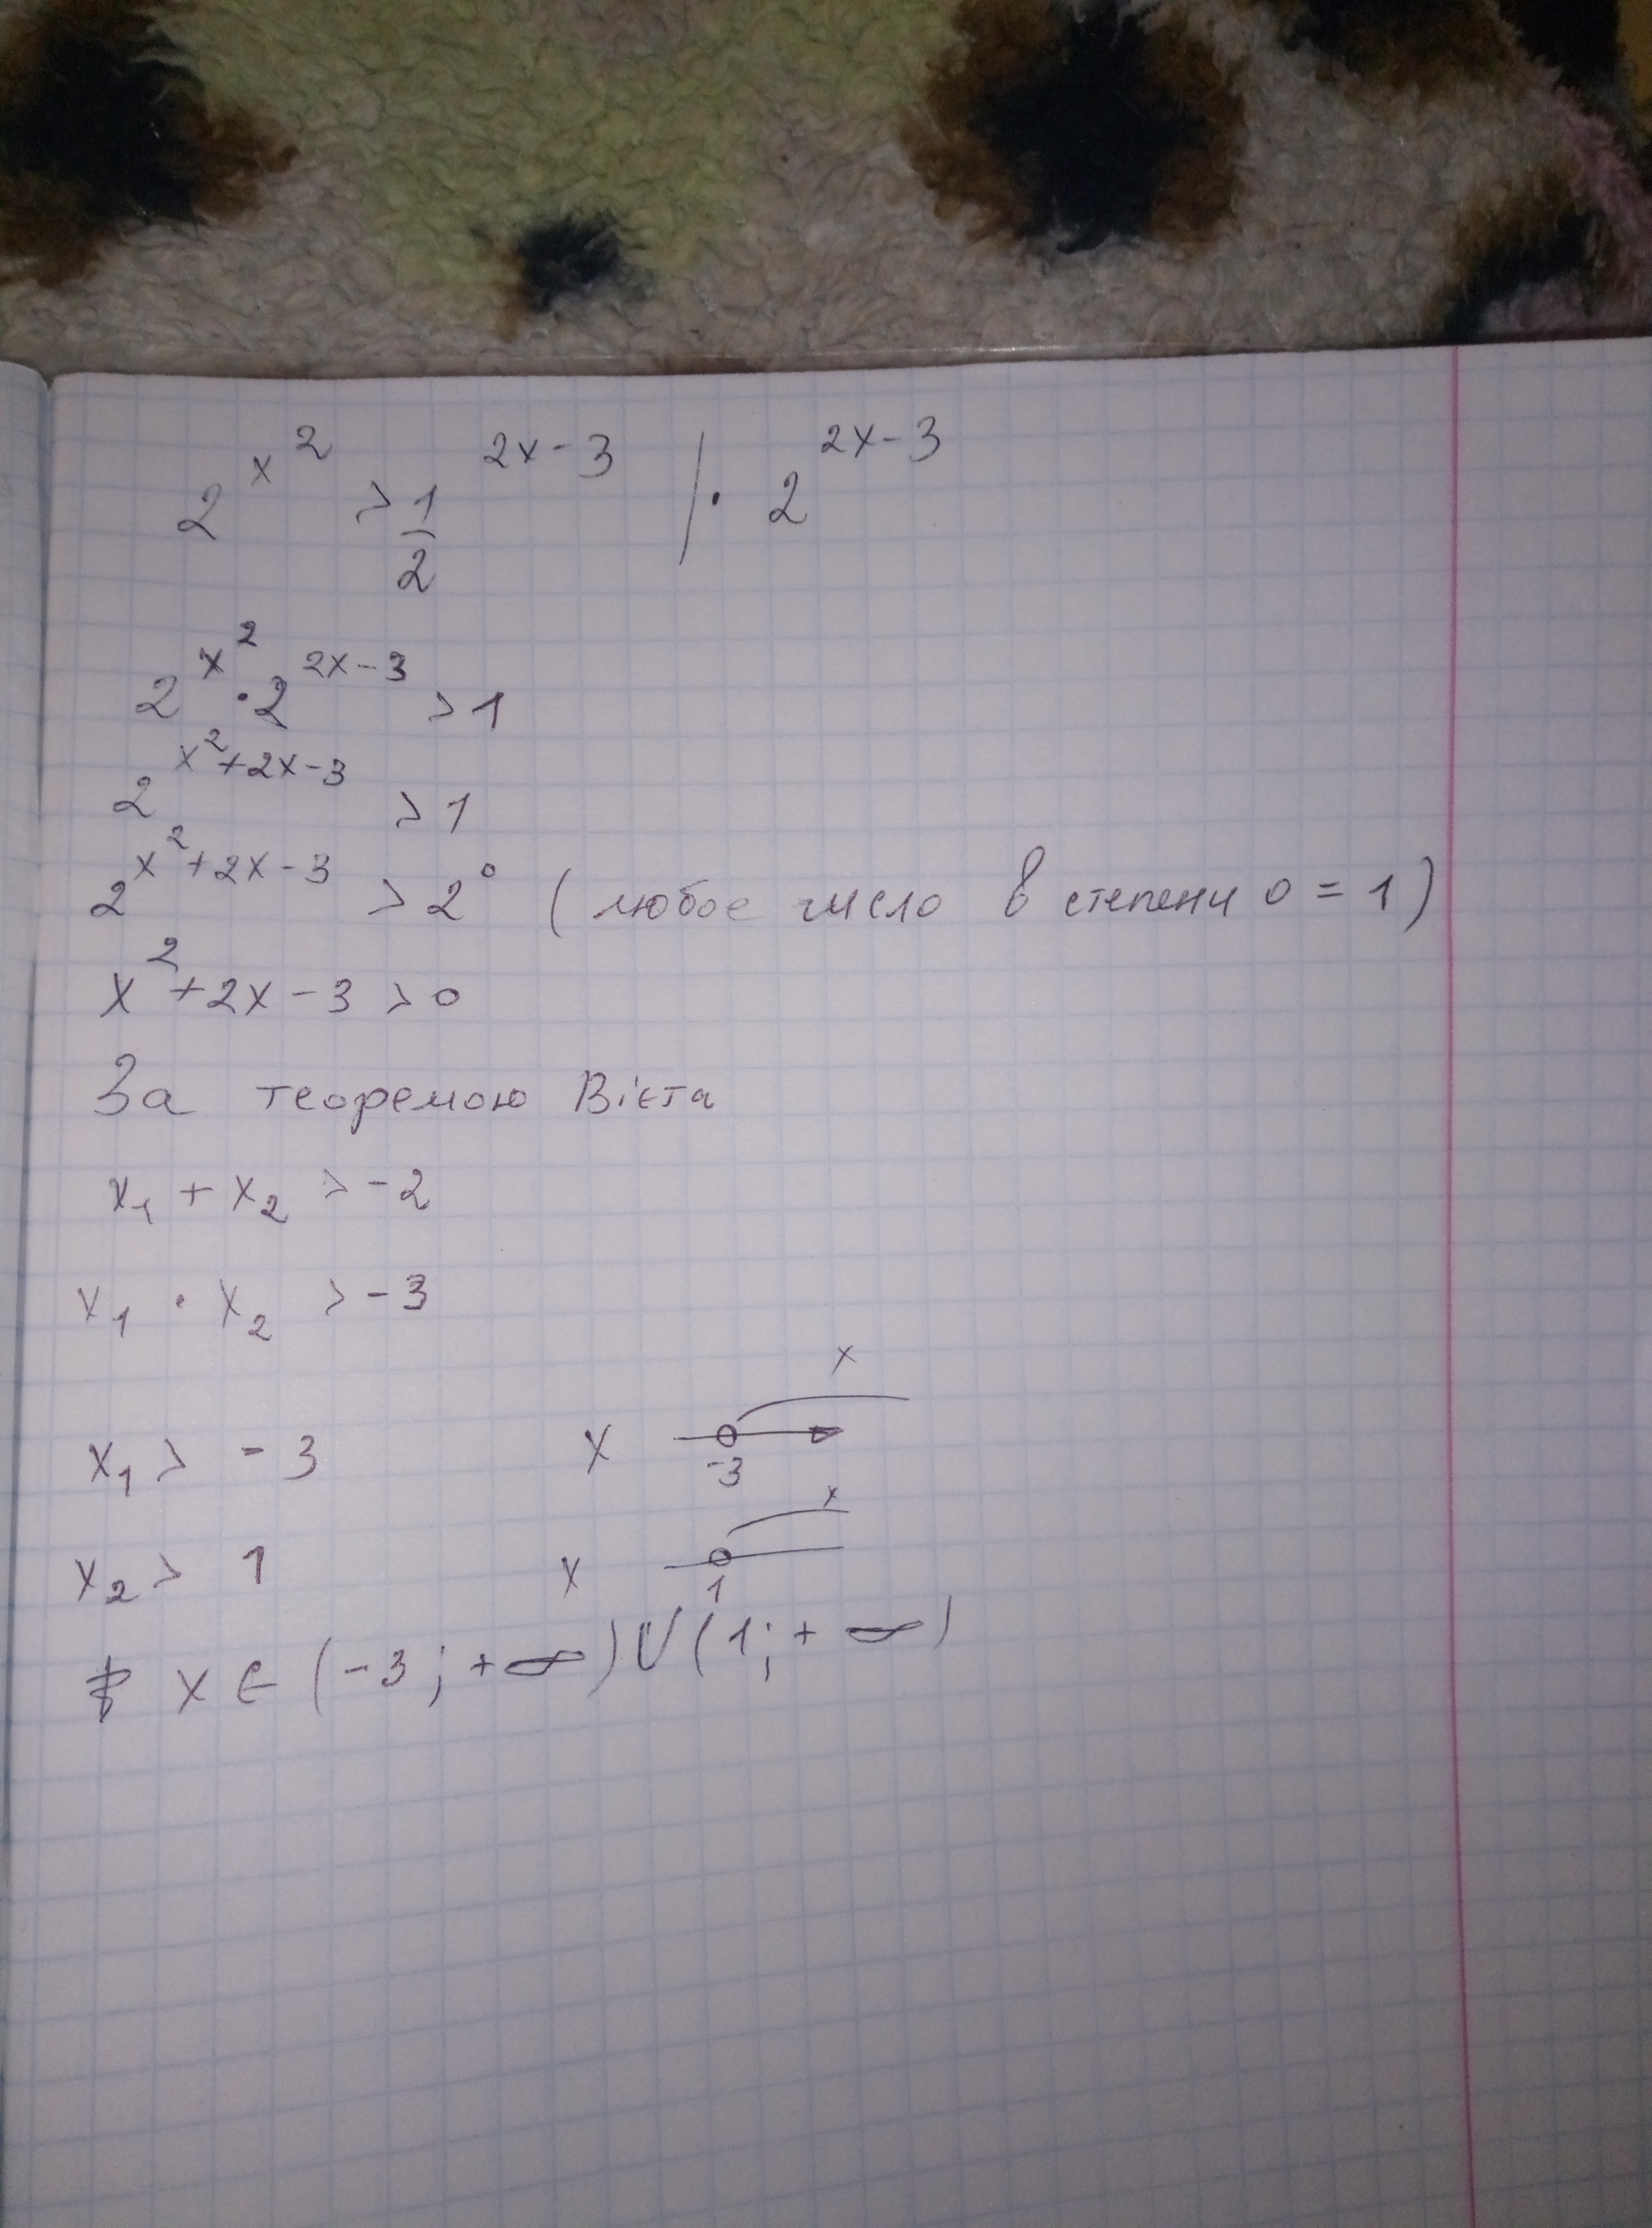 2^{x^2} > \frac{1}{2}^{2x-3} / \cdot 2^{2x-3}
2^{x^2} \cdot 2^{2x-3} > 1
2^{x^2+2x-3} > 1
2^{x^2+2x-3} > 2^0 (любое число в степени 0 = 1)
x^2+2x-3 > 0
За теоремою Вієта
x_1 + x_2 > -2
x_1 \cdot x_2 > -3
x
x_1 > -3 x
-3
x
x_2 > 1 x
1
x ∈ (-3; +∞) ∪ (1; +∞)